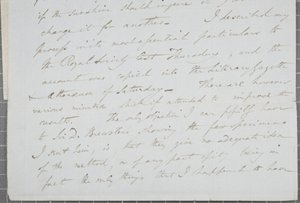 if the
change it for another. I described my
process with most essential particulars to
the Royal Society last Thursday, and the
account was copied into the Literary Gazette
& Athenaeum of Saturday. There are however
various minutiae which if attended to improve the
result. The only objection I can possibly have
to Sir D. Brewster's showing the few specimens
I sent him, is that they give no adequate idea
of the method, or of any part of it, being in
fact the only things that I happened to have